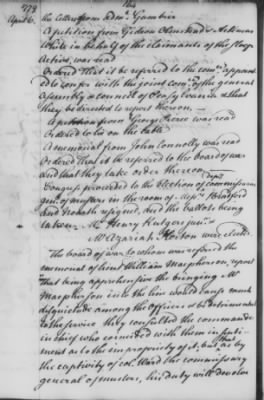 164
1779
April 6.
the letter from adm.l Gambier
A petition from Gideon Olmstead & Artimus
White in behalf of the claimants of the sloop
Active, was read
Ordered That it be referred to the com.ee appointed
to confer with the joint com.ee of the general
Assembly & council of Pensylvania & that
they be directed to report thereon —
A petition from George Peirce was read
Ordered to lie on the table
A memorial from John Connolly was read
Ordered That it be referred to the board of war
and that they take order thereon
Congress proceeded to the Election of dep.y commissaries
gen. of musters in the room of Mess.rs Bradford
and resigned, and the ballots being
taken, Mr. Henry Rutgers jun.r &
Mr Azariah Horton were elected
The board of war to whom was referred the
memorial of lieut William Macpherson, report
that being apprehensive the bringing Mr
Macpherson into the line would cause some
disquietude among the officers & be detrimental
to the service they consulted the commander
in chief who coincided with them in senti-
ment as to the impropriety of it, but that as by
the captivity of col. Ward the commissary
general of musters, his duty will devolve